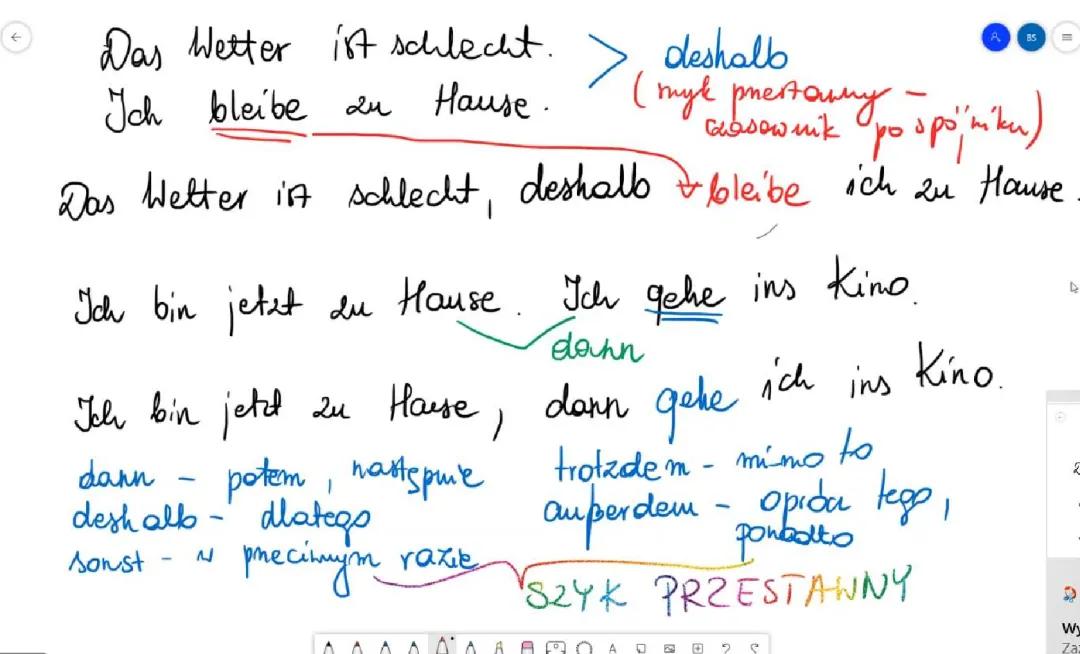 Das Wetter ist schlecht. > deshalb
Ich bleibe zu Hause. (szyk przestawny - czasownik po spójniku)
Das Wetter ist schlecht, deshalb bleibe ich zu Hause.
Ich bin jetzt zu Hause. Ich gehe ins Kino.
dann
Ich bin jetzt zu Hause, dann gehe ich ins Kino.
dann - potem, następnie
deshalb - dlatego
sonst - w przeciwnym razie
trotzdem - mimo to
außerdem - oprócz tego,
ponadto
SZYK PRZESTAWNY
BS
Wy